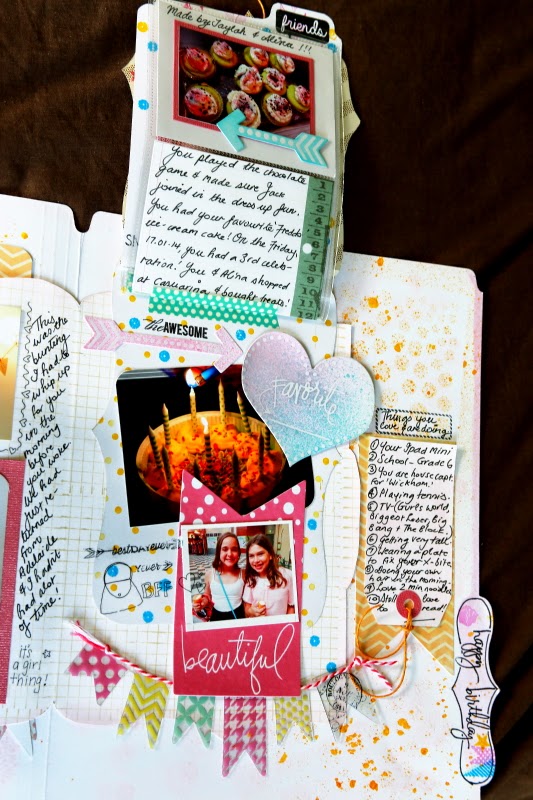 friends
Made by: Taylah & Alina !!!
You played the chocolate
game & made sure Jack
joined in the dress up fun.
You had your favourite 'Freddo'
ice-cream cake! On the Friday,
17.01.14, you had a 3rd celeb-
ration! You & Alina shopped
at Casuarina & bought treats!
1
2
3
4
5
6
7
8
9
10
11
12
SN
the AWESOME
This
was the
bunting
I had to
whip up
for you
on the
morning
before
you woke
We had
just re-
turned
from
Adelaide
& I hadn't
had alot
of time!
it's
a girl
thing!
Favorite
Things you
love are doing..
① Your Ipad Mini
② School - Grade 6
③ You are house capt.
for 'Wickham.'
④ Playing tennis.
⑤ TV - (Girls world,
Biggest Loser, Big
Bang + The Block.)
⑥ Getting very tall.
⑦ Wearing a plate
to fix your X-bite
⑧ Doing your own
hair in the morning.
⑨ Love 2 min noodles
⑩ Still love
to read!
BFF
beautiful
happy
birthday